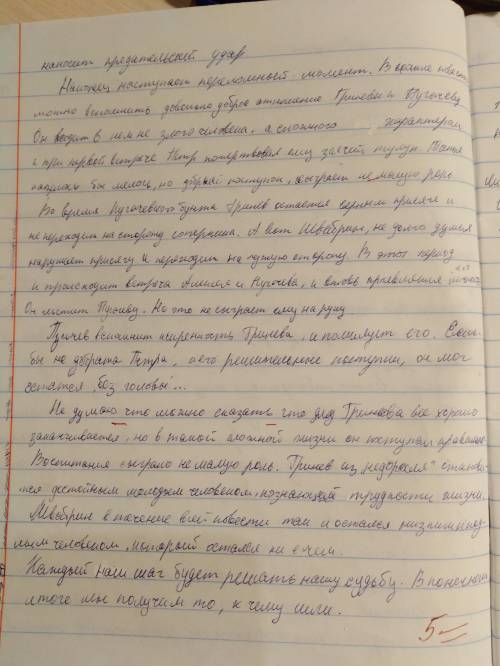 наносит предательский удар
Наконец наступает переломный момент. В начале повести
можно вспомнить довольно доброе отношение Гринёва к Пугачёву
Он видит в нем не злого человека, а сложного характером
и при первой встрече Петр пожертвовал ему заячий тулуп.
казалась бы мелочь, но добрый поступок, сыграет не малую роль
Во время Пугачевского бунта Гринев остается верным присяге и
не переходит на сторону соперника. А вот Швабрин, не долго думая
нарушает присягу и переходит на чужую сторону. В этот период
и происходит встреча Алексея и Пугачева, и вновь проявляется его
Он льстит Пугачеву. Но это не сыграет ему на руку
Пугачев вспомнит искренность Гринева, и помилует его. Если
бы не доброта Петра, и его решительные поступки, он мог
остатся „без головы"...
Не думаю что можно сказать что для Гринева все хорошо
заканчивается, но в такой сложной жизни он поступал правильно
Воспитания сыграло не малую роль. Гринев из „недоросля" станови-
тся достойным молодым человеком, познающий трудности жизни.
Швабрин в течение всей повести так и остался низким и под-
лым человеком, который остался ни с чем.
Каждый наш шаг будет решать нашу судьбу. В конечном
итоге мы получим то, к чему шли.
5-